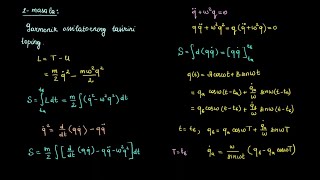 1-masala:
Garmonik ossilatorning ta'sirini
toping.
L = T - U
= m/2 q̇² - mω²q²/2
S = ∫_{t_a}^{t_b} L dt = m/2 ∫ (q̇² - ω²q²) dt
q̇² = d/dt (q q̇) - q q̈
S = m/2 ∫ [d/dt (q q̇) - q q̈ - ω²q²] dt
q̈ + ω²q = 0
q q̈ + ω²q² = q (q̈ + ω²q) = 0
S = ∫ d(q q̇) = [q q̇]_{t_a}^{t_b}
q(t) = A cosωt + B sinωt
= q_a cosω(t-t_a) + q̇_a/ω sinω(t-t_a)
t = t_b, q_b = q_a cosωT + q̇_a/ω sinωT
q̇_a = ω/sinωT (q_b - q_a cosωT)